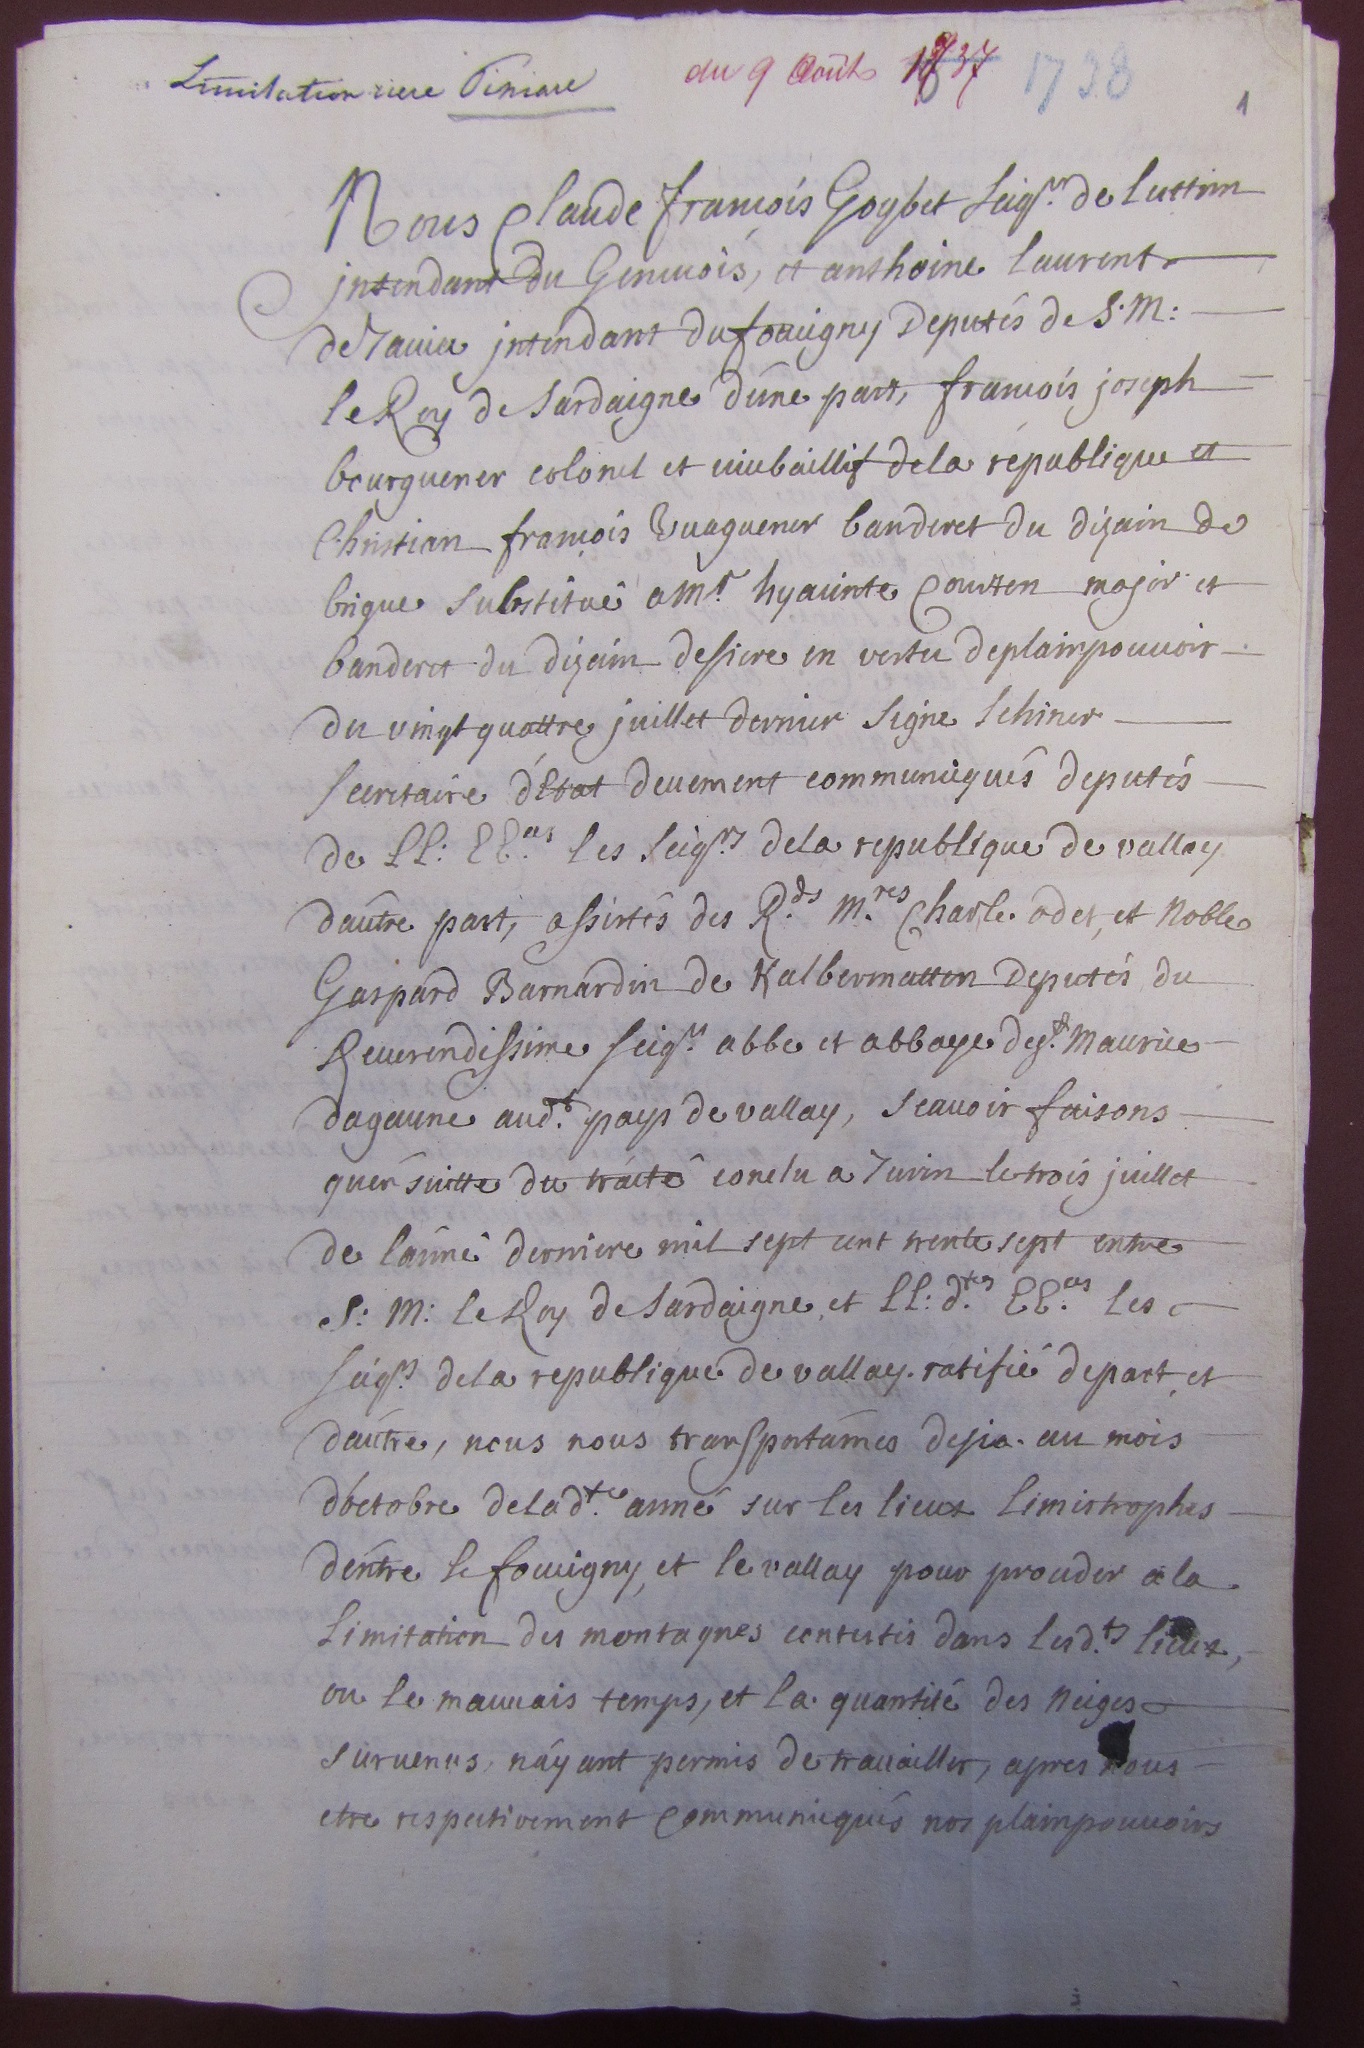 Limitation riere Finiaux
du 9 Août 1737 1738
1
Nous Claude françois Goybet seigr. de Luttrin
jntendant du Genevois, et anthoine laurent
de Tavier jntendant du foucigny Deputés de S. M:
le Roy de Sardaigne d'une part, françois joseph
bourguener colonel et vicebaillif dela république et
Christian françois Vuaguener banderet du dizain de
brigue substitué a Mr. hyacinte Courten major et
banderet du dizain de siere en vertu de plainpouvoir
du vingt quattre juillet dernier signe Schiner
secretaire d'Etat deuement communiqués deputés
de LL: EE.ces les seigrs. dela republique de vallay
dautre part, assistés des R.ds M.res Charle odet, et Noble
Gaspard Barnardin de Kalbermatten Deputés du
Reverendissime seigr. abbe et abbaye de st. Maurice
dagaune aud.t pays de vallay, scavoir faisons
qu'en suitte du traité conclu a Turin le trois juillet
de l'année derniere mil sept cent trente sept entre
S: M: le Roy de Sardaigne, et LL: d.tes EE.ces les
seigrs. dela republique de vallay. ratifié de part et
dautre, nous nous transportâmes desja au mois
d'octobre de la d.te année sur les lieux limistrophes
dentre le foucigny, et le vallay pour proceder a la
limitation des montagnes contestés dans lesd.ts lieux,
ou le mauvais temps, et la quantité des Neiges
survenus, n'ayant permis de travailler, apres nous
etre respectivement communiqués nos plainpouvoirs